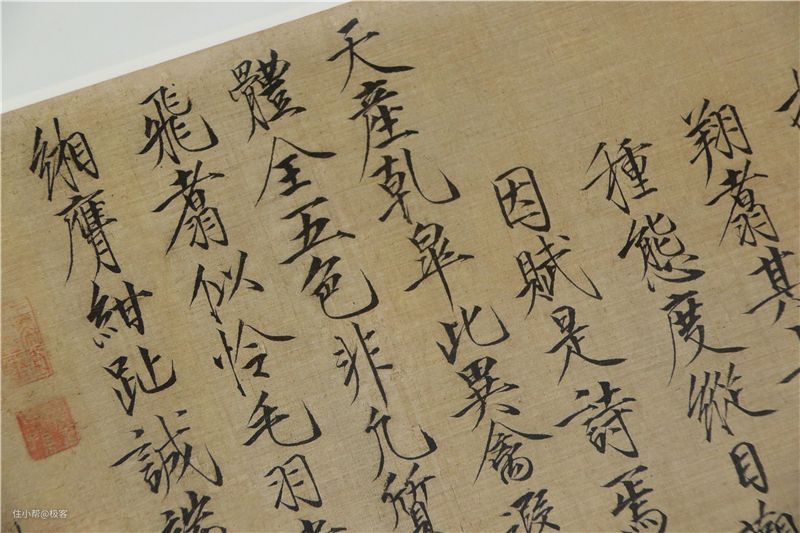 翔翥其
種態度縱目
因賦是詩焉
天產乾皋此異禽遐
體全五色非凡質
飛翥似怜毛羽
緗膺紺趾誠端
住小帮@极客